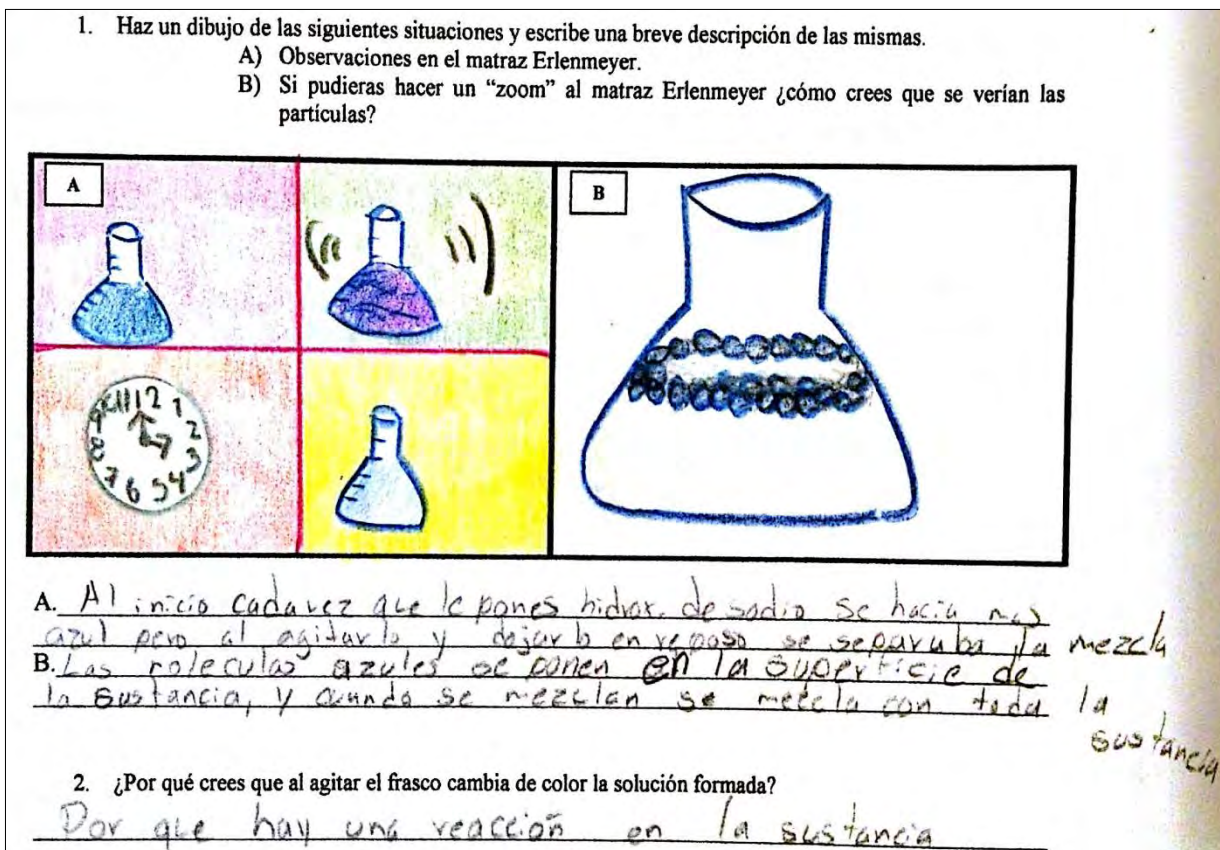 1. Haz un dibujo de las siguientes situaciones y escribe una breve descripción de las mismas.
A) Observaciones en el matraz Erlenmeyer.
B) Si pudieras hacer un “zoom” al matraz Erlenmeyer ¿cómo crees que se verían las
partículas?
A
B
11 12 1
2
3
4
5
6
7
8
9
A. Al inicio cada vez que le pones hidrox. de sodio se hacia mas
azul pero al agitarlo y dejarlo en reposo se separaba la mezcla
B. Las moleculas azules se ponen en la superficie de
la sustancia, y cuando se mezclan se mezcla con toda la
sustancia
2. ¿Por qué crees que al agitar el frasco cambia de color la solución formada?
Por que hay una reacción en la sustancia